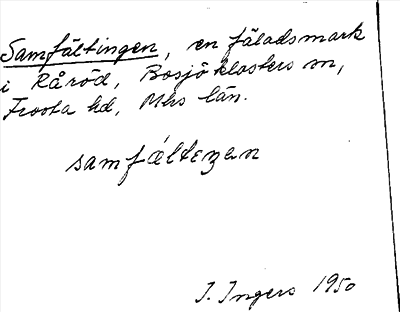 Samfältingen, en fäladsmark
i Råröd, Bosjöklosters sn,
Frosta hd, Mhs län.
samfálteɳan
I. Ingers 1950